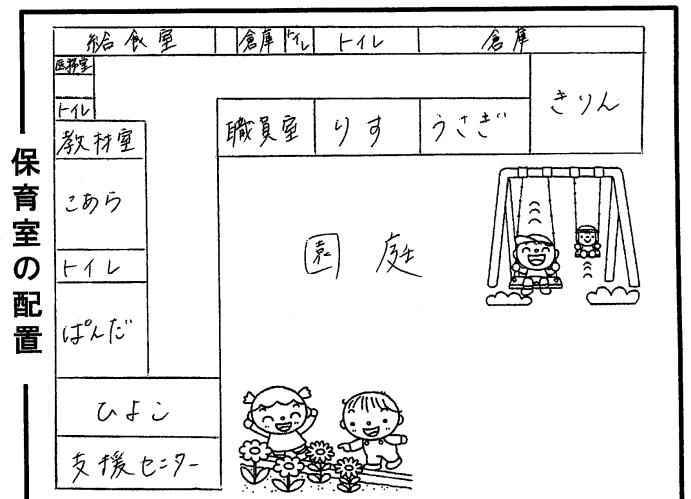 保育室の配置
給食室
倉庫
トイレ
トイレ
倉庫
医務室
トイレ
教材室
こあら
トイレ
ぱんだ
ひよこ
支援センター
職員室
りす
うさぎ
きりん
園庭